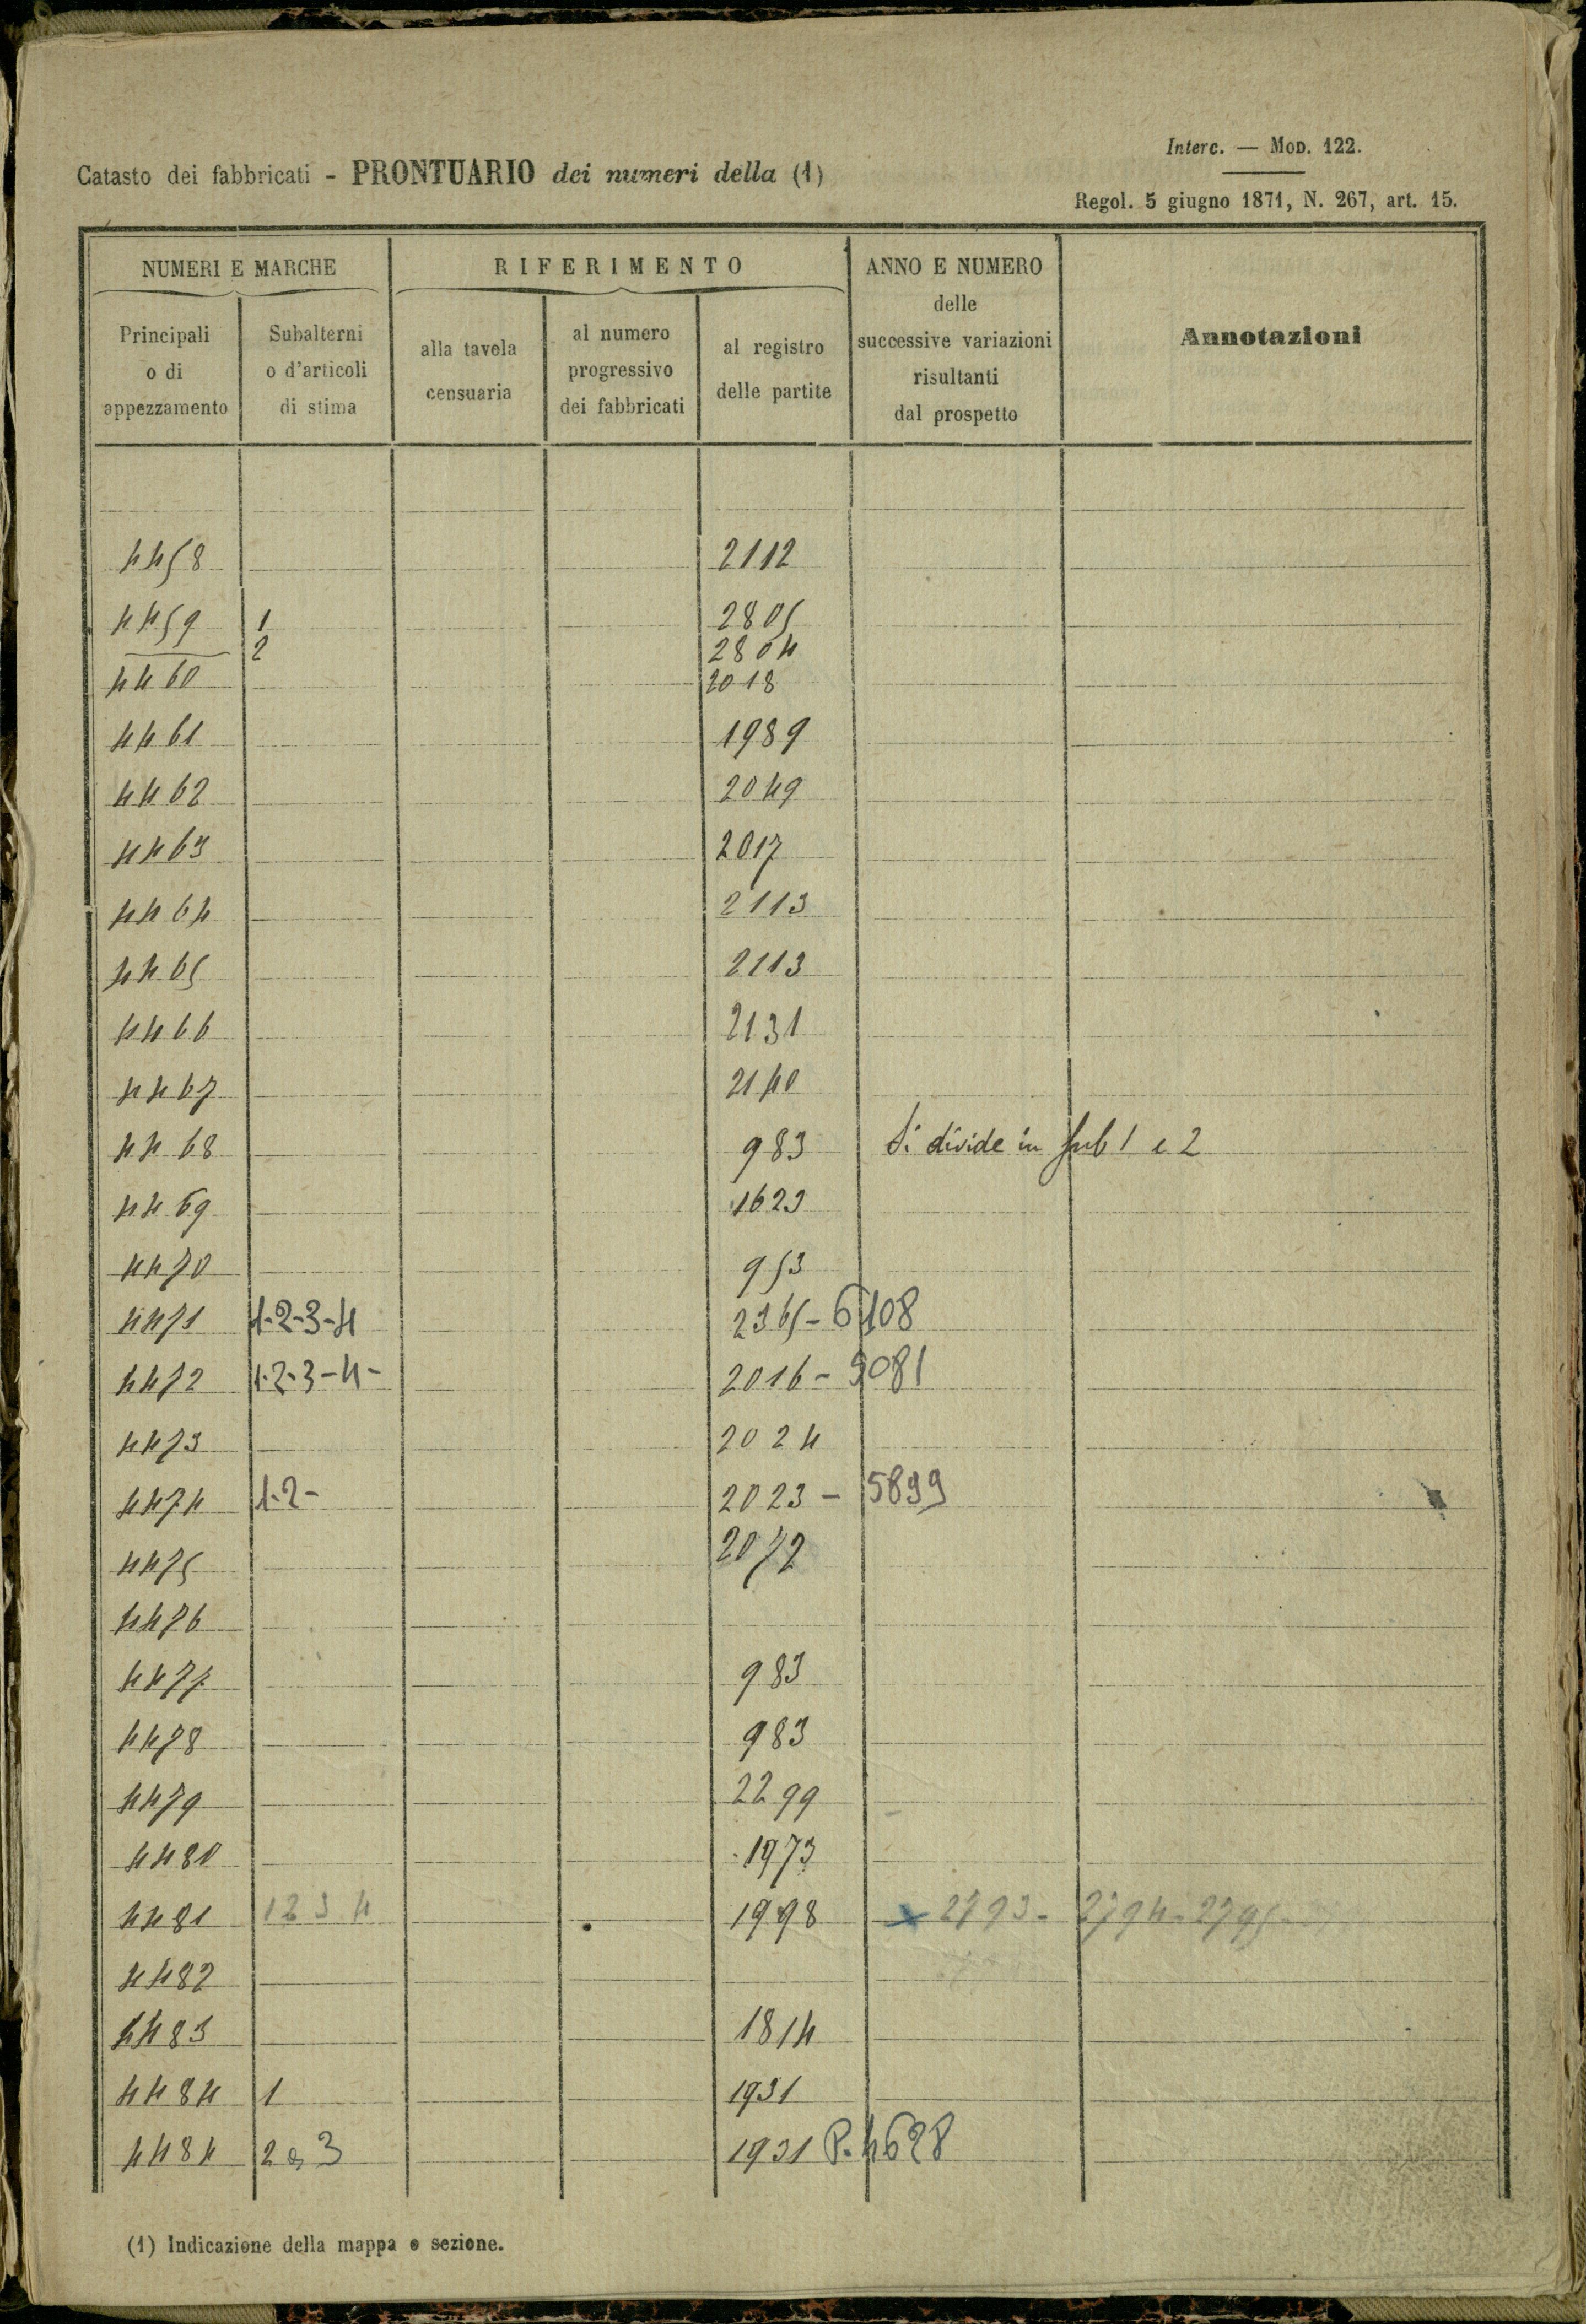 Interc. — Mod. 122.
Catasto dei fabbricati - PRONTUARIO dei numeri della (1)
Regol. 5 giugno 1871, N. 267, art. 15.
NUMERI E MARCHE
RIFERIMENTO
ANNO E NUMERO
delle
successive variazioni
risultanti
dal prospetto
Annotazioni
Principali
o di
appezzamento
Subalterni
o d'articoli
di stima
alla tavola
censuaria
al numero
progressivo
dei fabbricati
al registro
delle partite
4458 2112
4459 1 2805
2 2804
4460 2018
4461 1989
4462 2049
4463 2017
4464 2113
4465 2113
4466 2131
4467 2140
4468 983 Si divide in sub 1 e 2
4469 1623
4470 953
4471 1-2-3-4 2365-6108
4472 1-2-3-4- 2016-9081
4473 2024
4474 1-2- 2023-5899
4475 2072
4476
4477 983
4478 983
4479 2299
4480 1973
4481 1 2 3 4 1998 x 2793-2794-2795-
4482
4483 1814
4484 1 1931
4484 2 e 3 1931 P. 4628
(1) Indicazione della mappa o sezione.